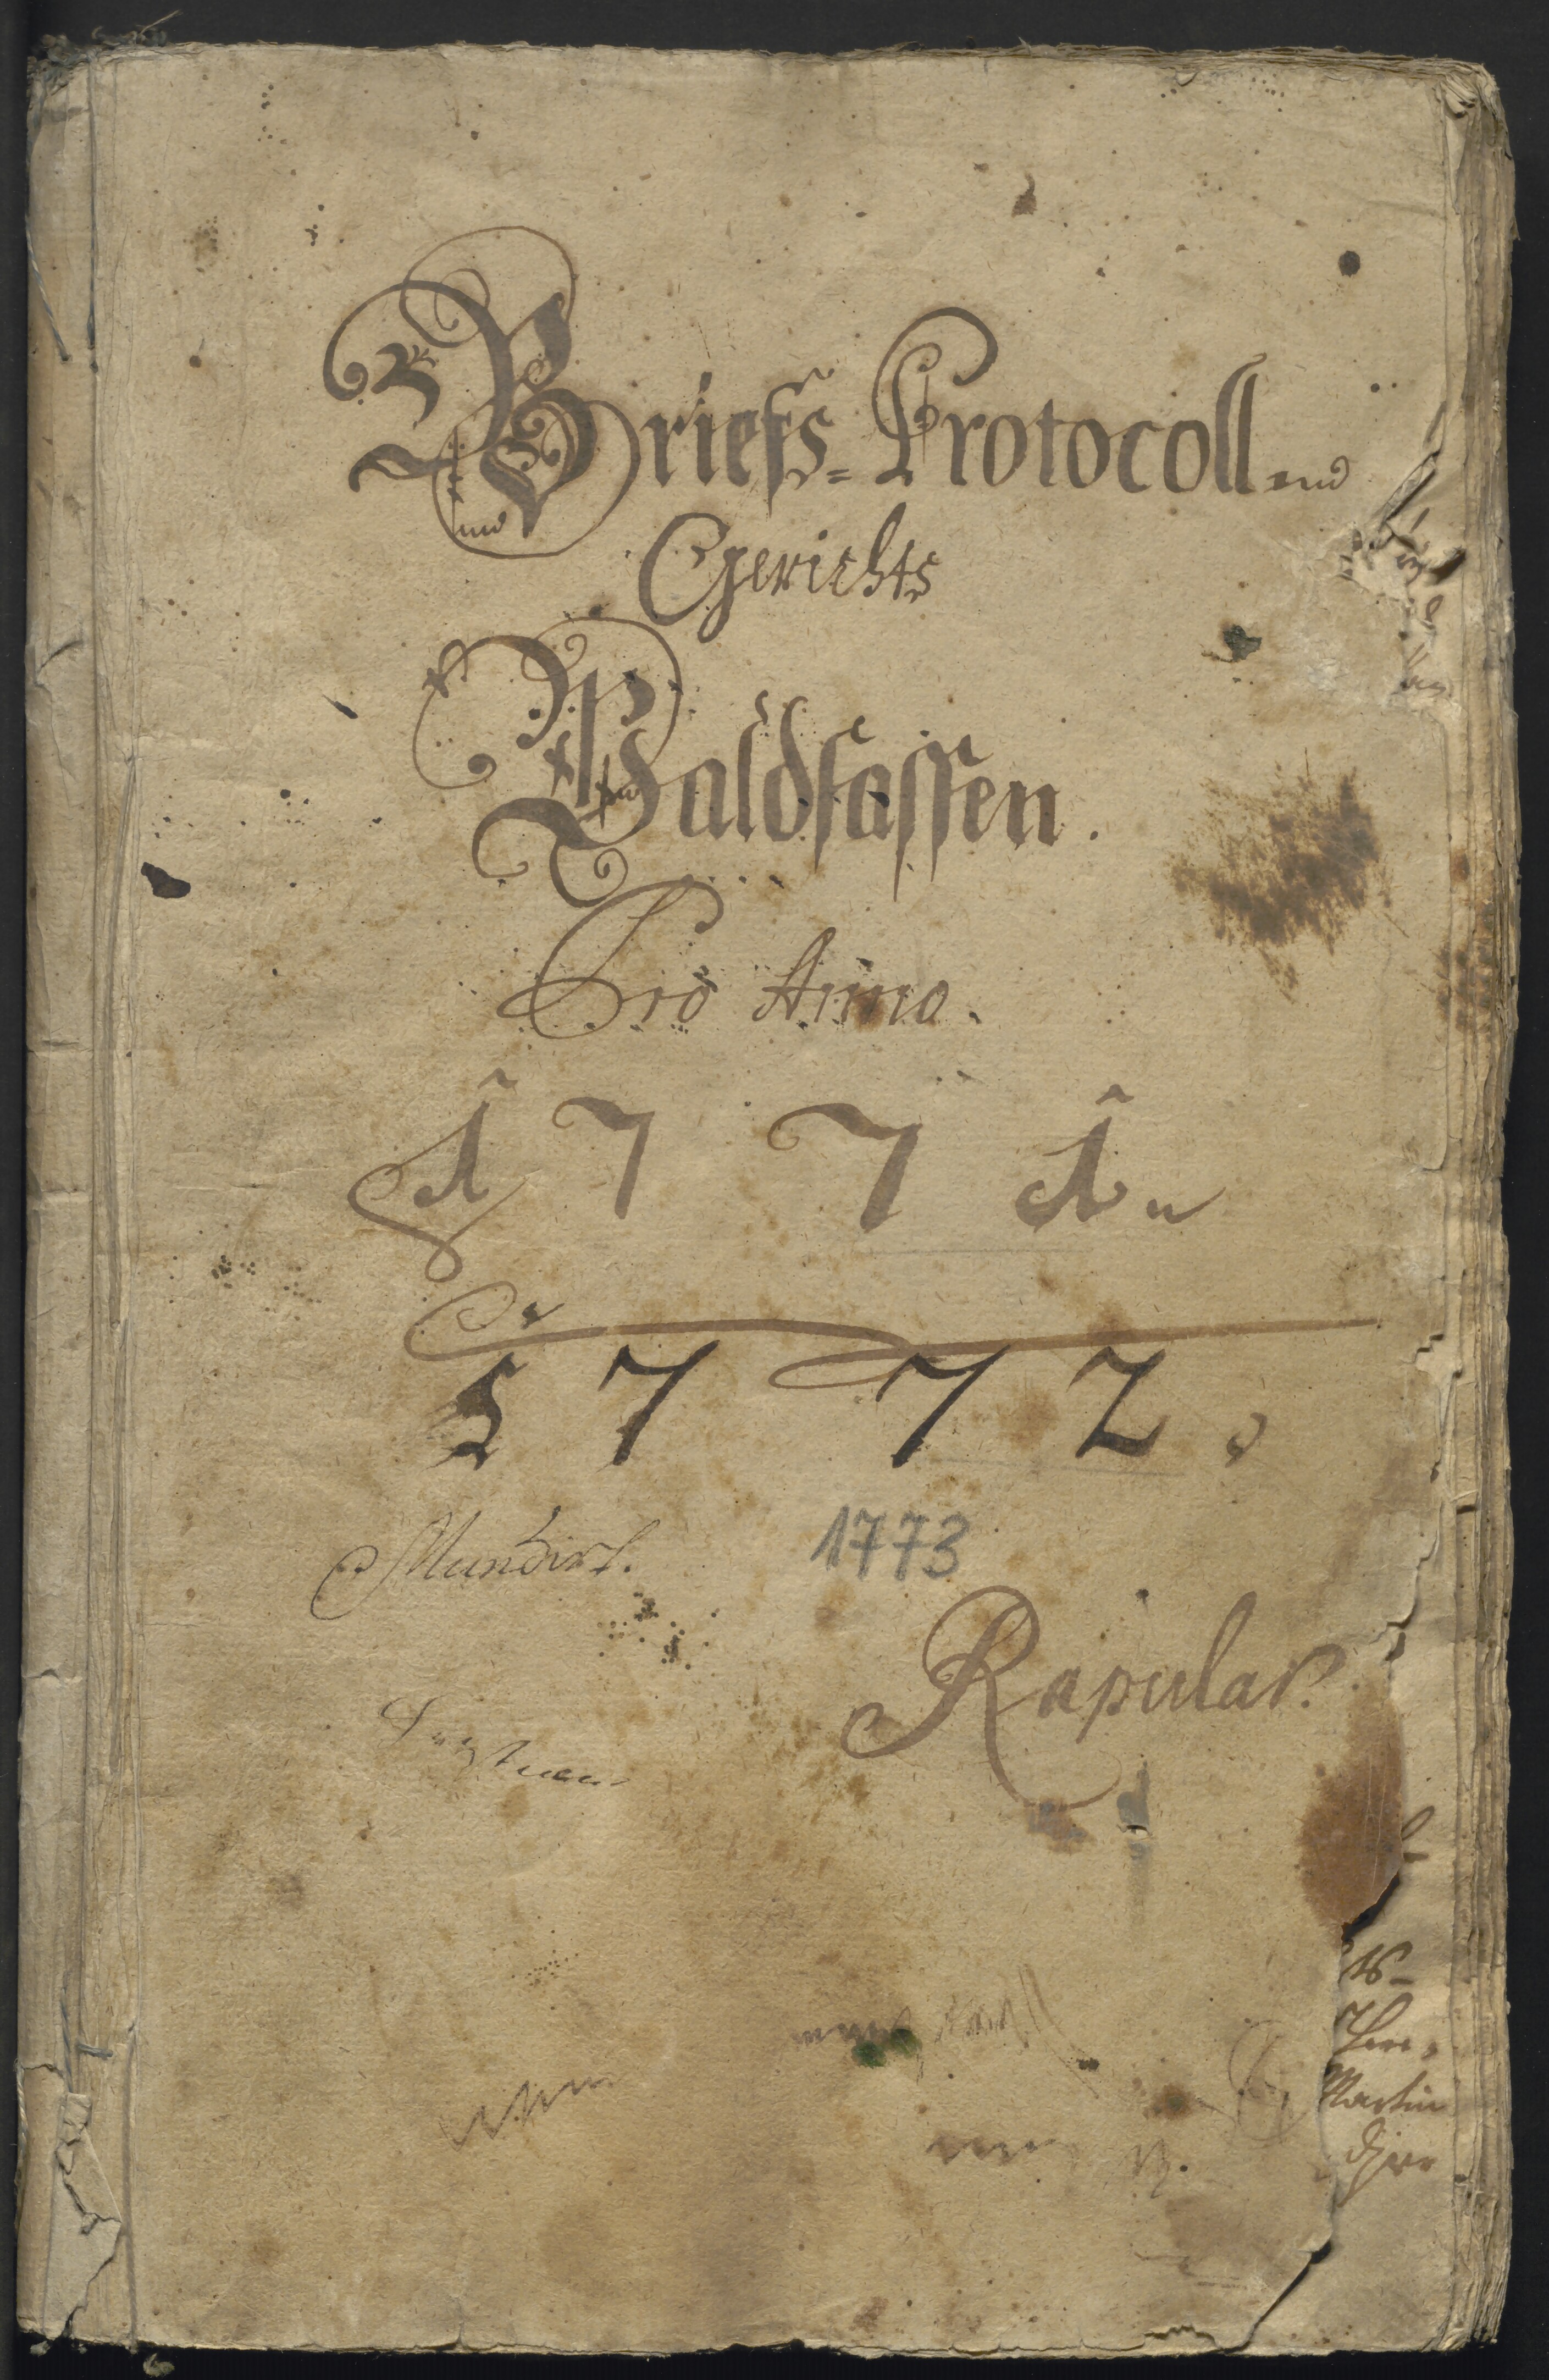 Briefs=Protocoll
Gerichts
Waldsassen.
Pro Anno.
1771.
1772.
Mundirt.
1773
Rapular.
Martin